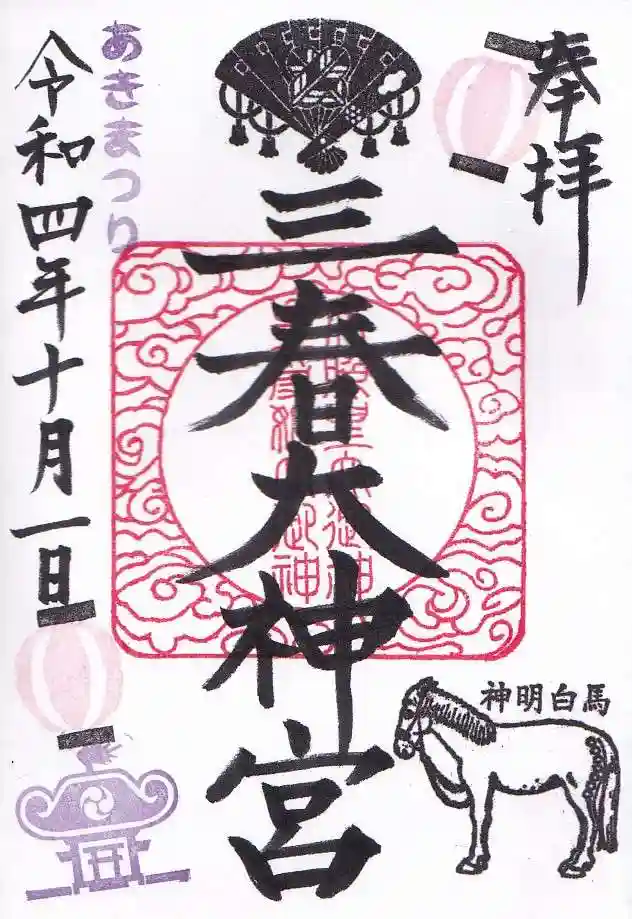 奉拝
三春大神宮
あきまつり
令和四年十月一日
神明白馬